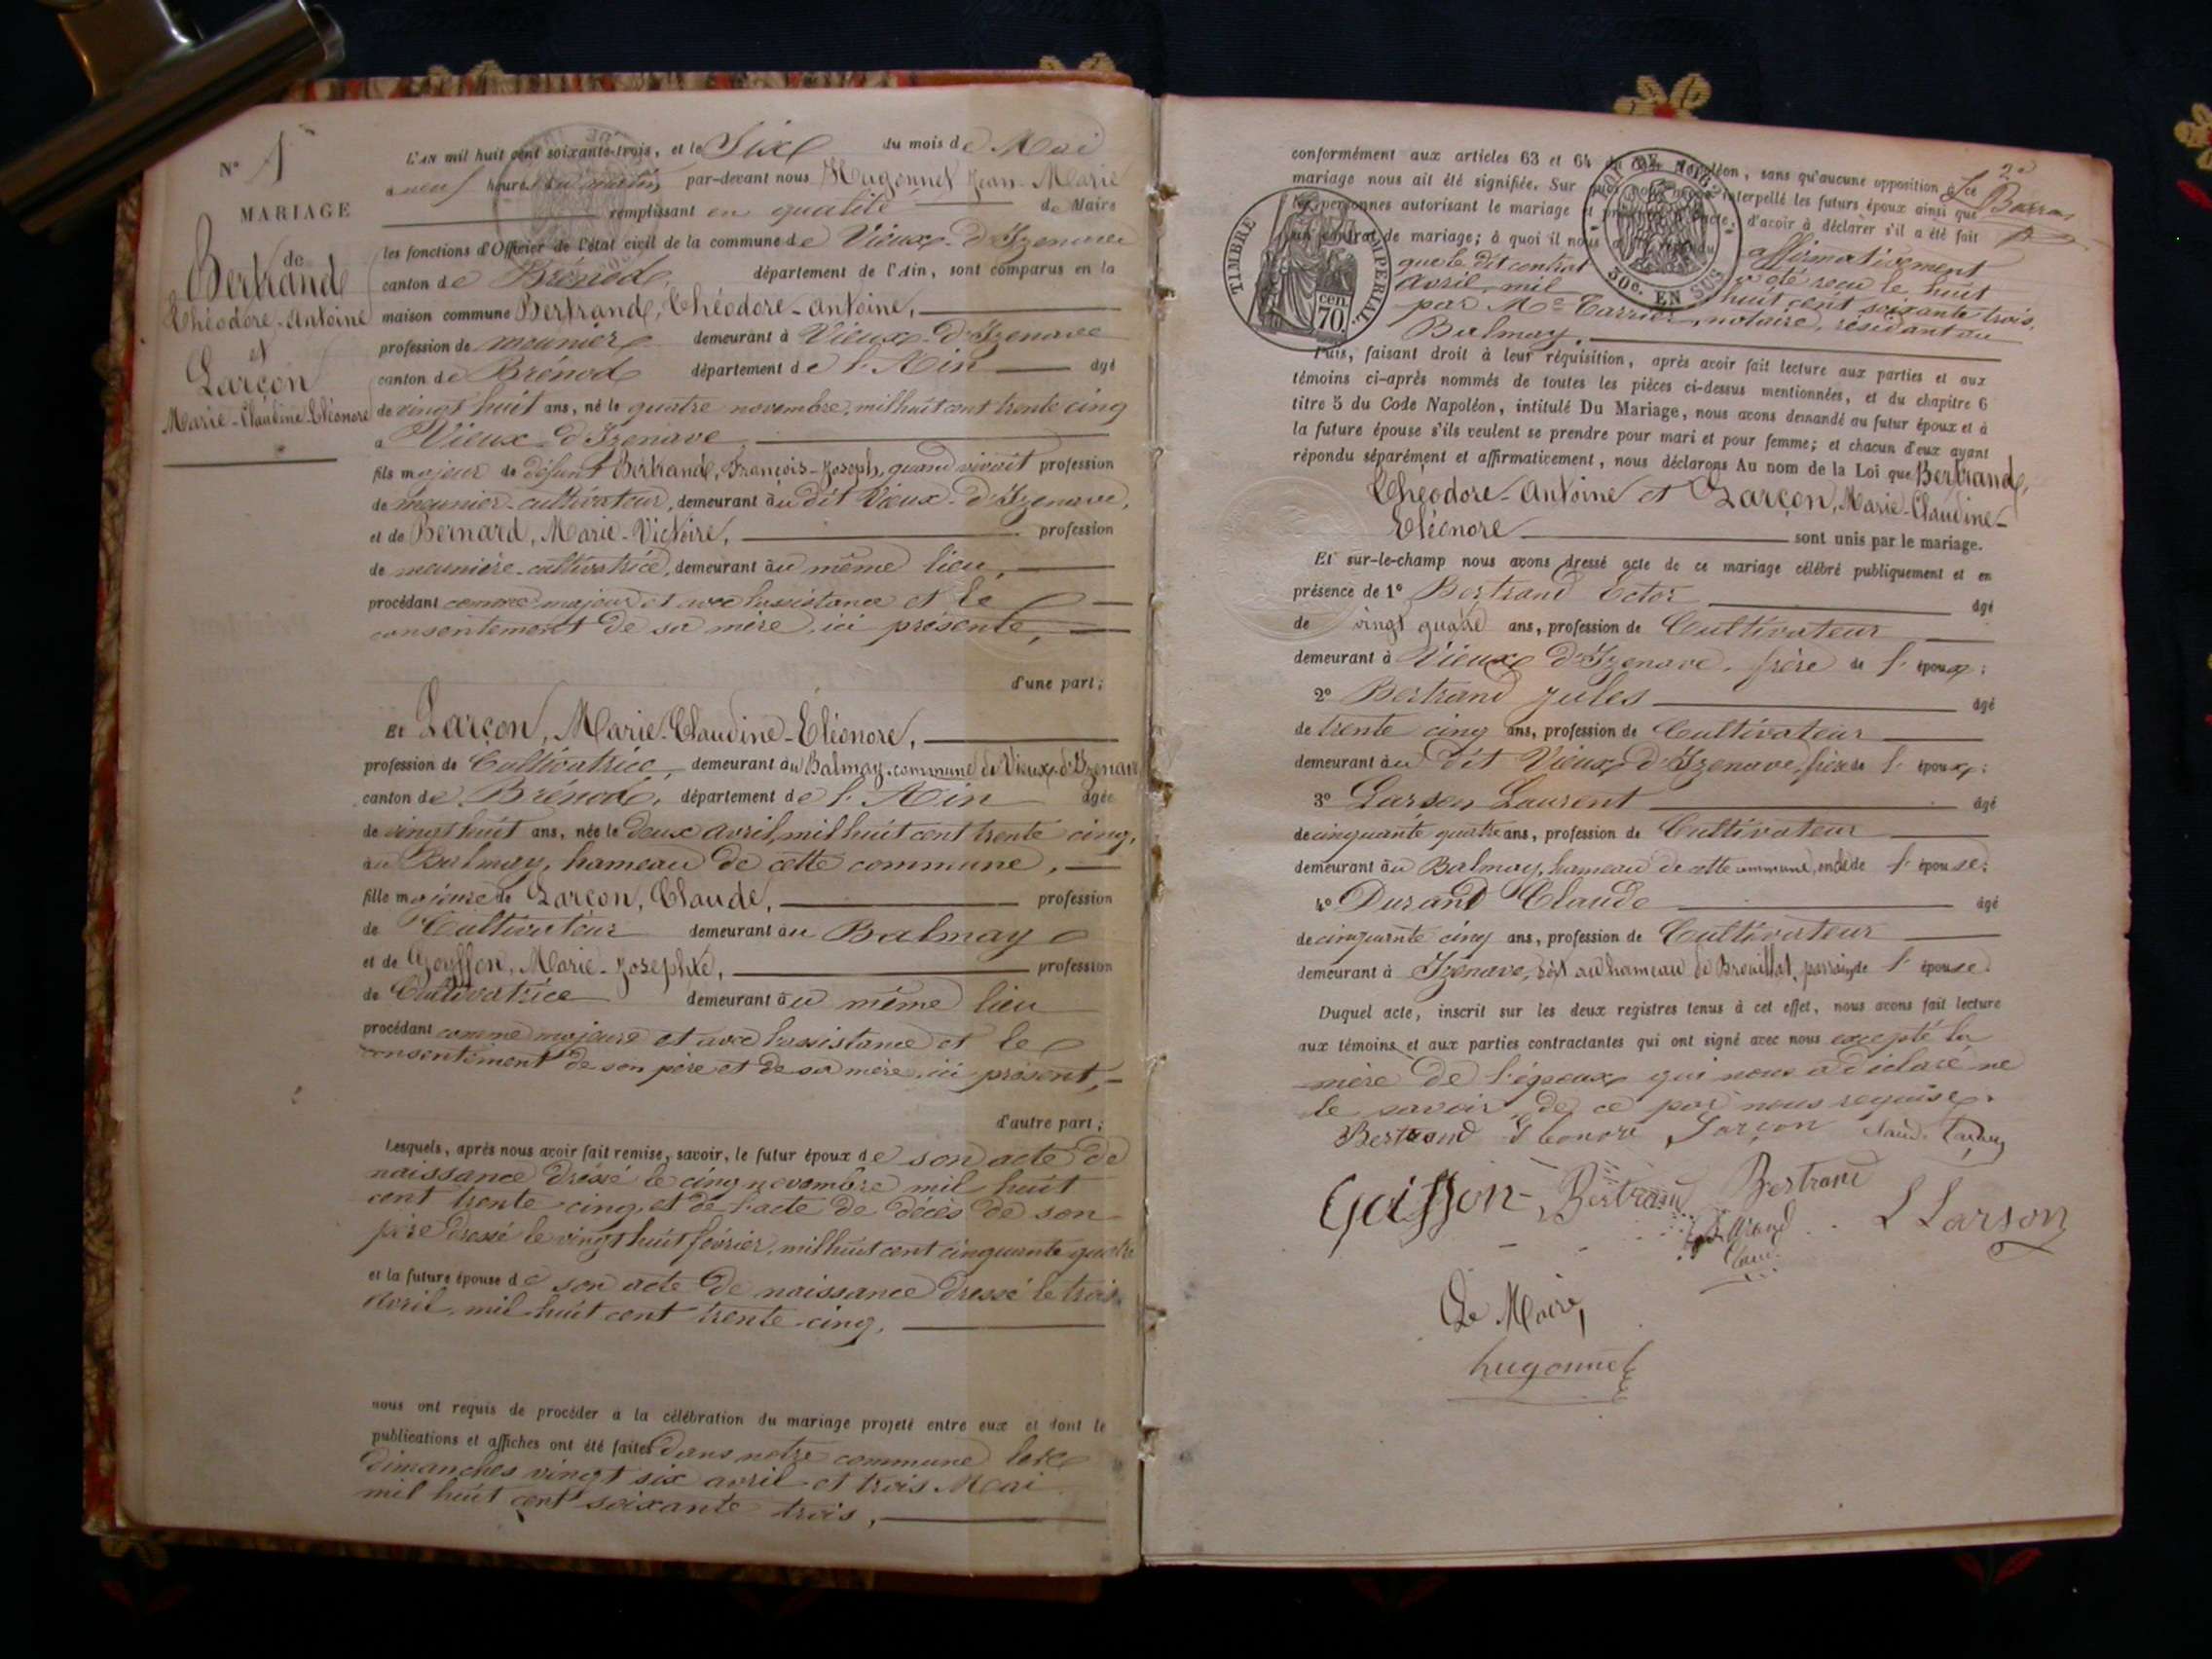 N° 1
MARIAGE
de
Bertrand
Théodore-Antoine
et
Larçon
Marie-Claudine-Eléonore
L'AN mil huit cent soixante-trois, et le Six du mois de Mai
à neuf heures du matin par-devant nous Hugonnet Jean-Marie
remplissant en qualité de Maire
les fonctions d'Officier de l'état civil de la commune de Vieux-d'Izenave
canton de Brénod, département de l'Ain, sont comparus en la
maison commune Bertrand, Théodore-Antoine,
profession de meunier demeurant à Vieux-d'Izenave
canton de Brénod département de l'Ain âgé
de vingt huit ans, né le quatre novembre, mil huit cent trente cinq
à Vieux-d'Izenave
fils majeur de défunt Bertrand, François-Joseph, quand vivait profession
de meunier-cultivateur, demeurant au dit Vieux-d'Izenave,
et de Bernard, Marie-Victoire, profession
de meunière-cultivatrice, demeurant au même lieu,
procédant comme majeur et avec l'assistance et le
consentement de sa mère, ici présente,
d'une part;
Et Larçon, Marie-Claudine-Eléonore,
profession de Cultivatrice, demeurant au Balmay, commune de Vieux-d'Izenave
canton de Brénod, département de l'Ain âgée
de vingt huit ans, née le deux avril, mil huit cent trente cinq,
au Balmay, hameau de cette commune,
fille majeure de Larçon, Claude, profession
de Cultivateur demeurant au Balmay
et de Goyffon, Marie-Josephte, profession
de Cultivatrice demeurant au même lieu
procédant comme majeure et avec l'assistance et le
consentement de son père et de sa mère, ici présent,
d'autre part;
Lesquels, après nous avoir fait remise, savoir, le futur époux de son acte de
naissance dressé le cinq novembre mil huit
cent trente cinq, et de l'acte de décès de son
père dressé le vingt huit février, mil huit cent cinquante quatre
et la future épouse de son acte de naissance dressé le trois
avril, mil huit cent trente cinq,
nous ont requis de procéder à la célébration du mariage projeté entre eux et dont le
publications et affiches ont été faites dans notre commune les
dimanches vingt six avril et trois Mai
mil huit cent soixante trois,
2e
Barras
conformément aux articles 63 et 64 du Code Napoléon, sans qu'aucune opposition à ce
mariage nous ait été signifiée. Sur quoi nous avons interpellé les futurs époux ainsi que
les personnes autorisant le mariage et d'avoir à déclarer s'il a été fait
un contrat de mariage; à quoi il nous a été répondu affirmativement
que le dit contrat a été reçu le huit
avril, mil huit cent soixante trois,
par Me Carrier, notaire, résidant au
Balmay.
TIMBRE IMPERIAL
cen.
70.
50c. EN SUS
Puis, faisant droit à leur réquisition, après avoir fait lecture aux parties et aux
témoins ci-après nommés de toutes les pièces ci-dessus mentionnées, et du chapitre 6
titre 5 du Code Napoléon, intitulé Du Mariage, nous avons demandé au futur époux et à
la future épouse s'ils veulent se prendre pour mari et pour femme; et chacun d'eux ayant
répondu séparément et affirmativement, nous déclarons Au nom de la Loi que Bertrand,
Théodore-Antoine et Larçon, Marie-Claudine-
Eléonore sont unis par le mariage.
Et sur-le-champ nous avons dressé acte de ce mariage célébré publiquement et en
présence de 1° Bertrand Ector âgé
de vingt quatre ans, profession de Cultivateur
demeurant à Vieux d'Izenave, frère de l'époux;
2° Bertrand Jules âgé
de trente cinq ans, profession de Cultivateur
demeurant au dit Vieux d'Izenave, frère de l'époux;
3° Larson Laurent âgé
de cinquante quatre ans, profession de Cultivateur
demeurant au Balmay, hameau de cette commune, oncle de l'épouse;
4° Durand Claude âgé
de cinquante cinq ans, profession de Cultivateur
demeurant à Izenave, soit au hameau de Brouillat, parrain de l'épouse.
Duquel acte, inscrit sur les deux registres tenus à cet effet, nous avons fait lecture
aux témoins et aux parties contractantes qui ont signé avec nous excepté la
mère de l'époux qui nous a déclaré ne
le savoir, de ce par nous requise.
Bertrand Eleonore Larçon
Goiffon Bertrand Bertrand
L Larson
Le Maire,
hugonnet